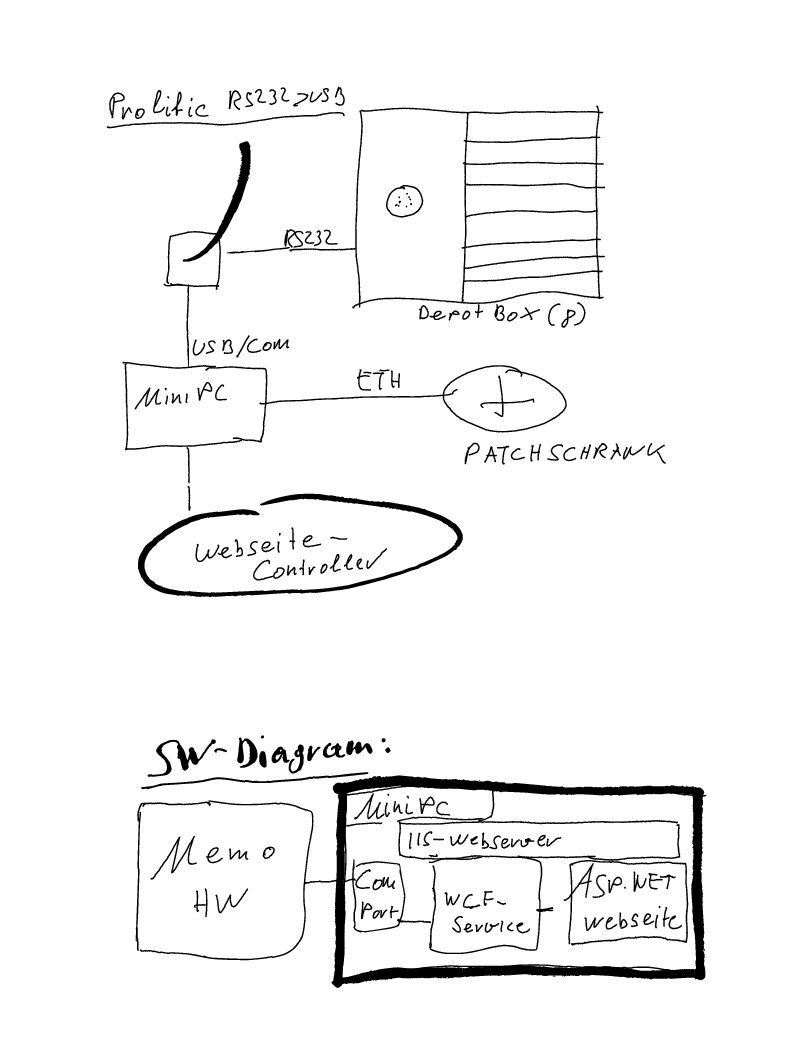 Prolific RS232>USB
RS232
Depot Box (8)
USB/Com
Mini PC
ETH
PATCHSCHRANK
Webseite-
Controller
SW-Diagram:
Mini PC
IIS-Webserver
Memo
HW
Com
Port
WCF-
Service
ASP.NET
Webseite